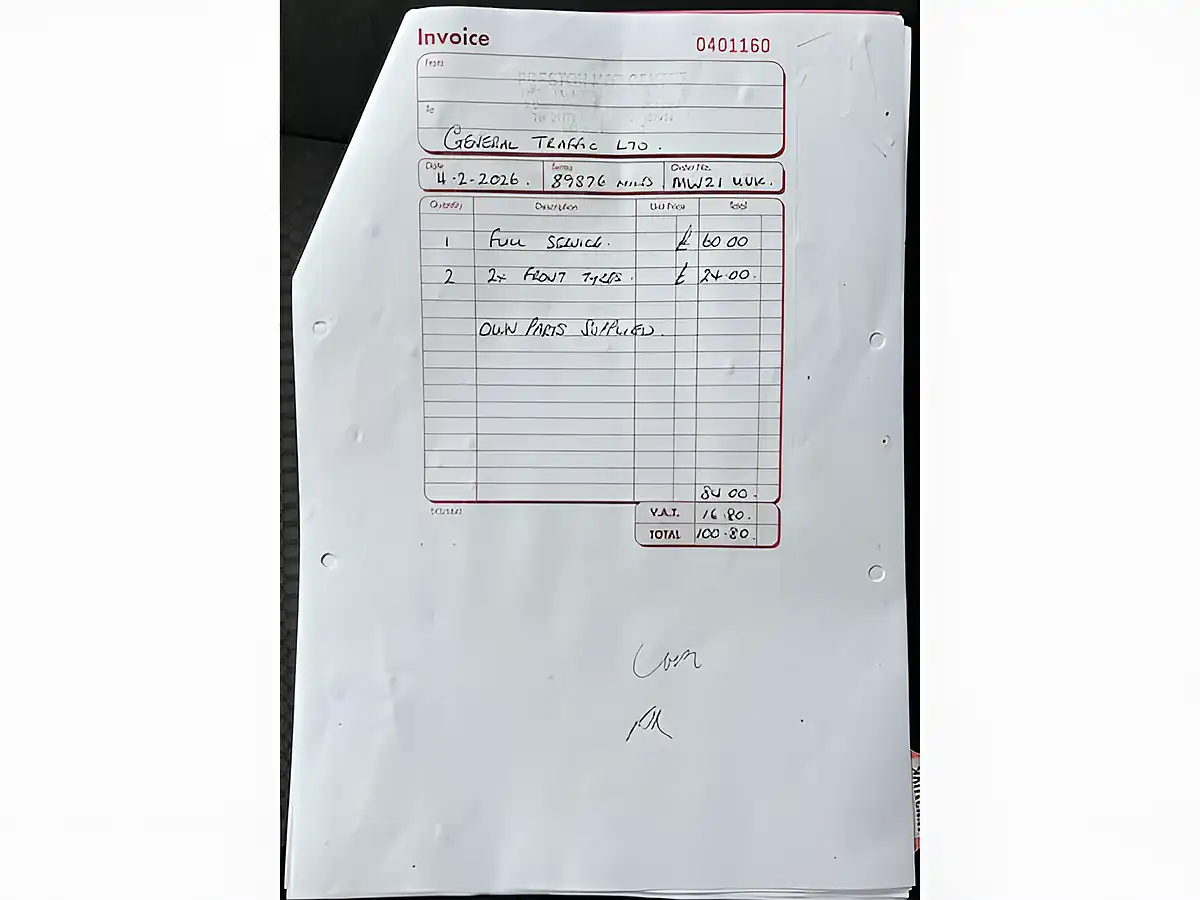 Invoice
0401160
From
To
GENERAL TRAFFIC LTD.
Date Terms Order No.
4-2-2026. 89876 MILES MW21 UVK.
Quantity Description Unit Price Total
1 FULL SERVICE. £ 60 00
2 2x FRONT TYRES. £ 24.00.
OWN PARTS SUPPLIED.
84 00.
V.A.T. 16.80.
TOTAL 100.80.